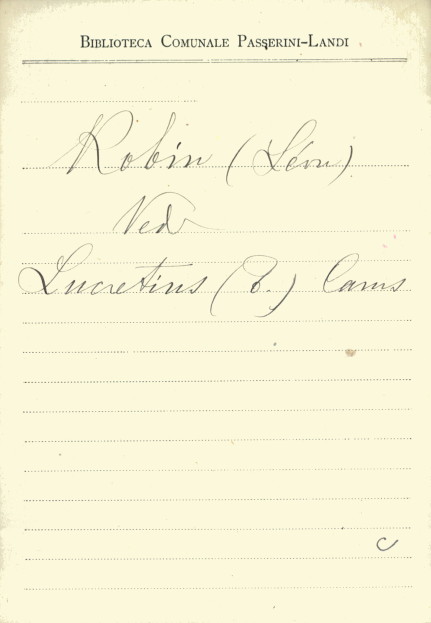 Biblioteca Comunale Passerini-Landi
Robin (Léon)
Ved
Lucretius (T.) Carus
C